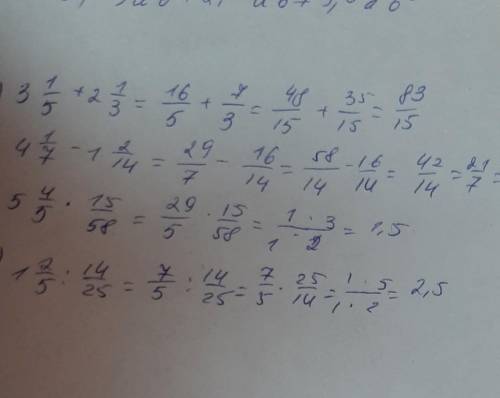 3 1/5 + 2 1/3 = 16/5 + 7/3 = 48/15 + 35/15 = 83/15
4 1/7 - 1 2/14 = 29/7 - 16/14 = 58/14 - 16/14 = 42/14 = 21/7 =
5 4/5 · 15/58 = 29/5 · 15/58 = 1 · 3/1 · 2 = 1,5
1 2/5 : 14/25 = 7/5 : 14/25 = 7/5 · 25/14 = 1 · 5/1 · 2 = 2,5